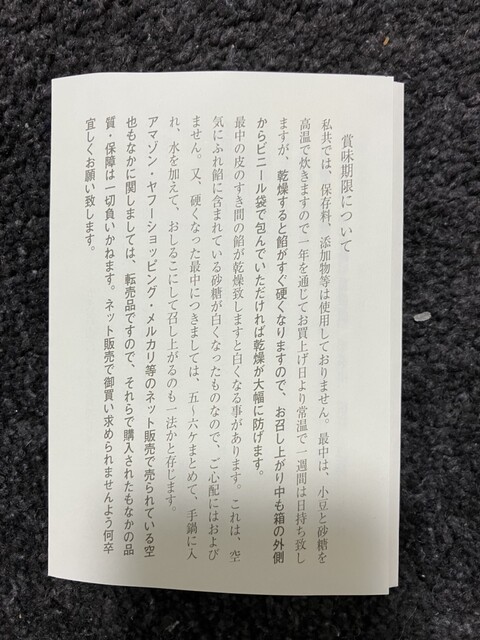 賞味期限について
私共では、保存料、添加物等は使用しておりません。最中は、小豆と砂糖を
高温で炊きますので一年を通じてお買上げ日より常温で一週間は日持ち致し
ますが、乾燥すると餡がすぐ硬くなりますので、お召し上がり中も箱の外側
からビニール袋で包んでいただければ乾燥が大幅に防げます。
最中の皮のすき間の餡が乾燥致しますと白くなる事があります。これは、空
気にふれ餡に含まれている砂糖が白くなったものなので、ご心配にはおよび
ません。又、硬くなった最中につきましては、五〜六ケまとめて、手鍋に入
れ、水を加えて、おしるこにして召し上がるのも一法かと存じます。
アマゾン・ヤフーショッピング・メルカリ等のネット販売で売られている空
也もなかに関しましては、転売品ですので、それらで購入されたもなかの品
質・保障は一切負いかねます。ネット販売で御買い求められませんよう何卒
宜しくお願い致します。